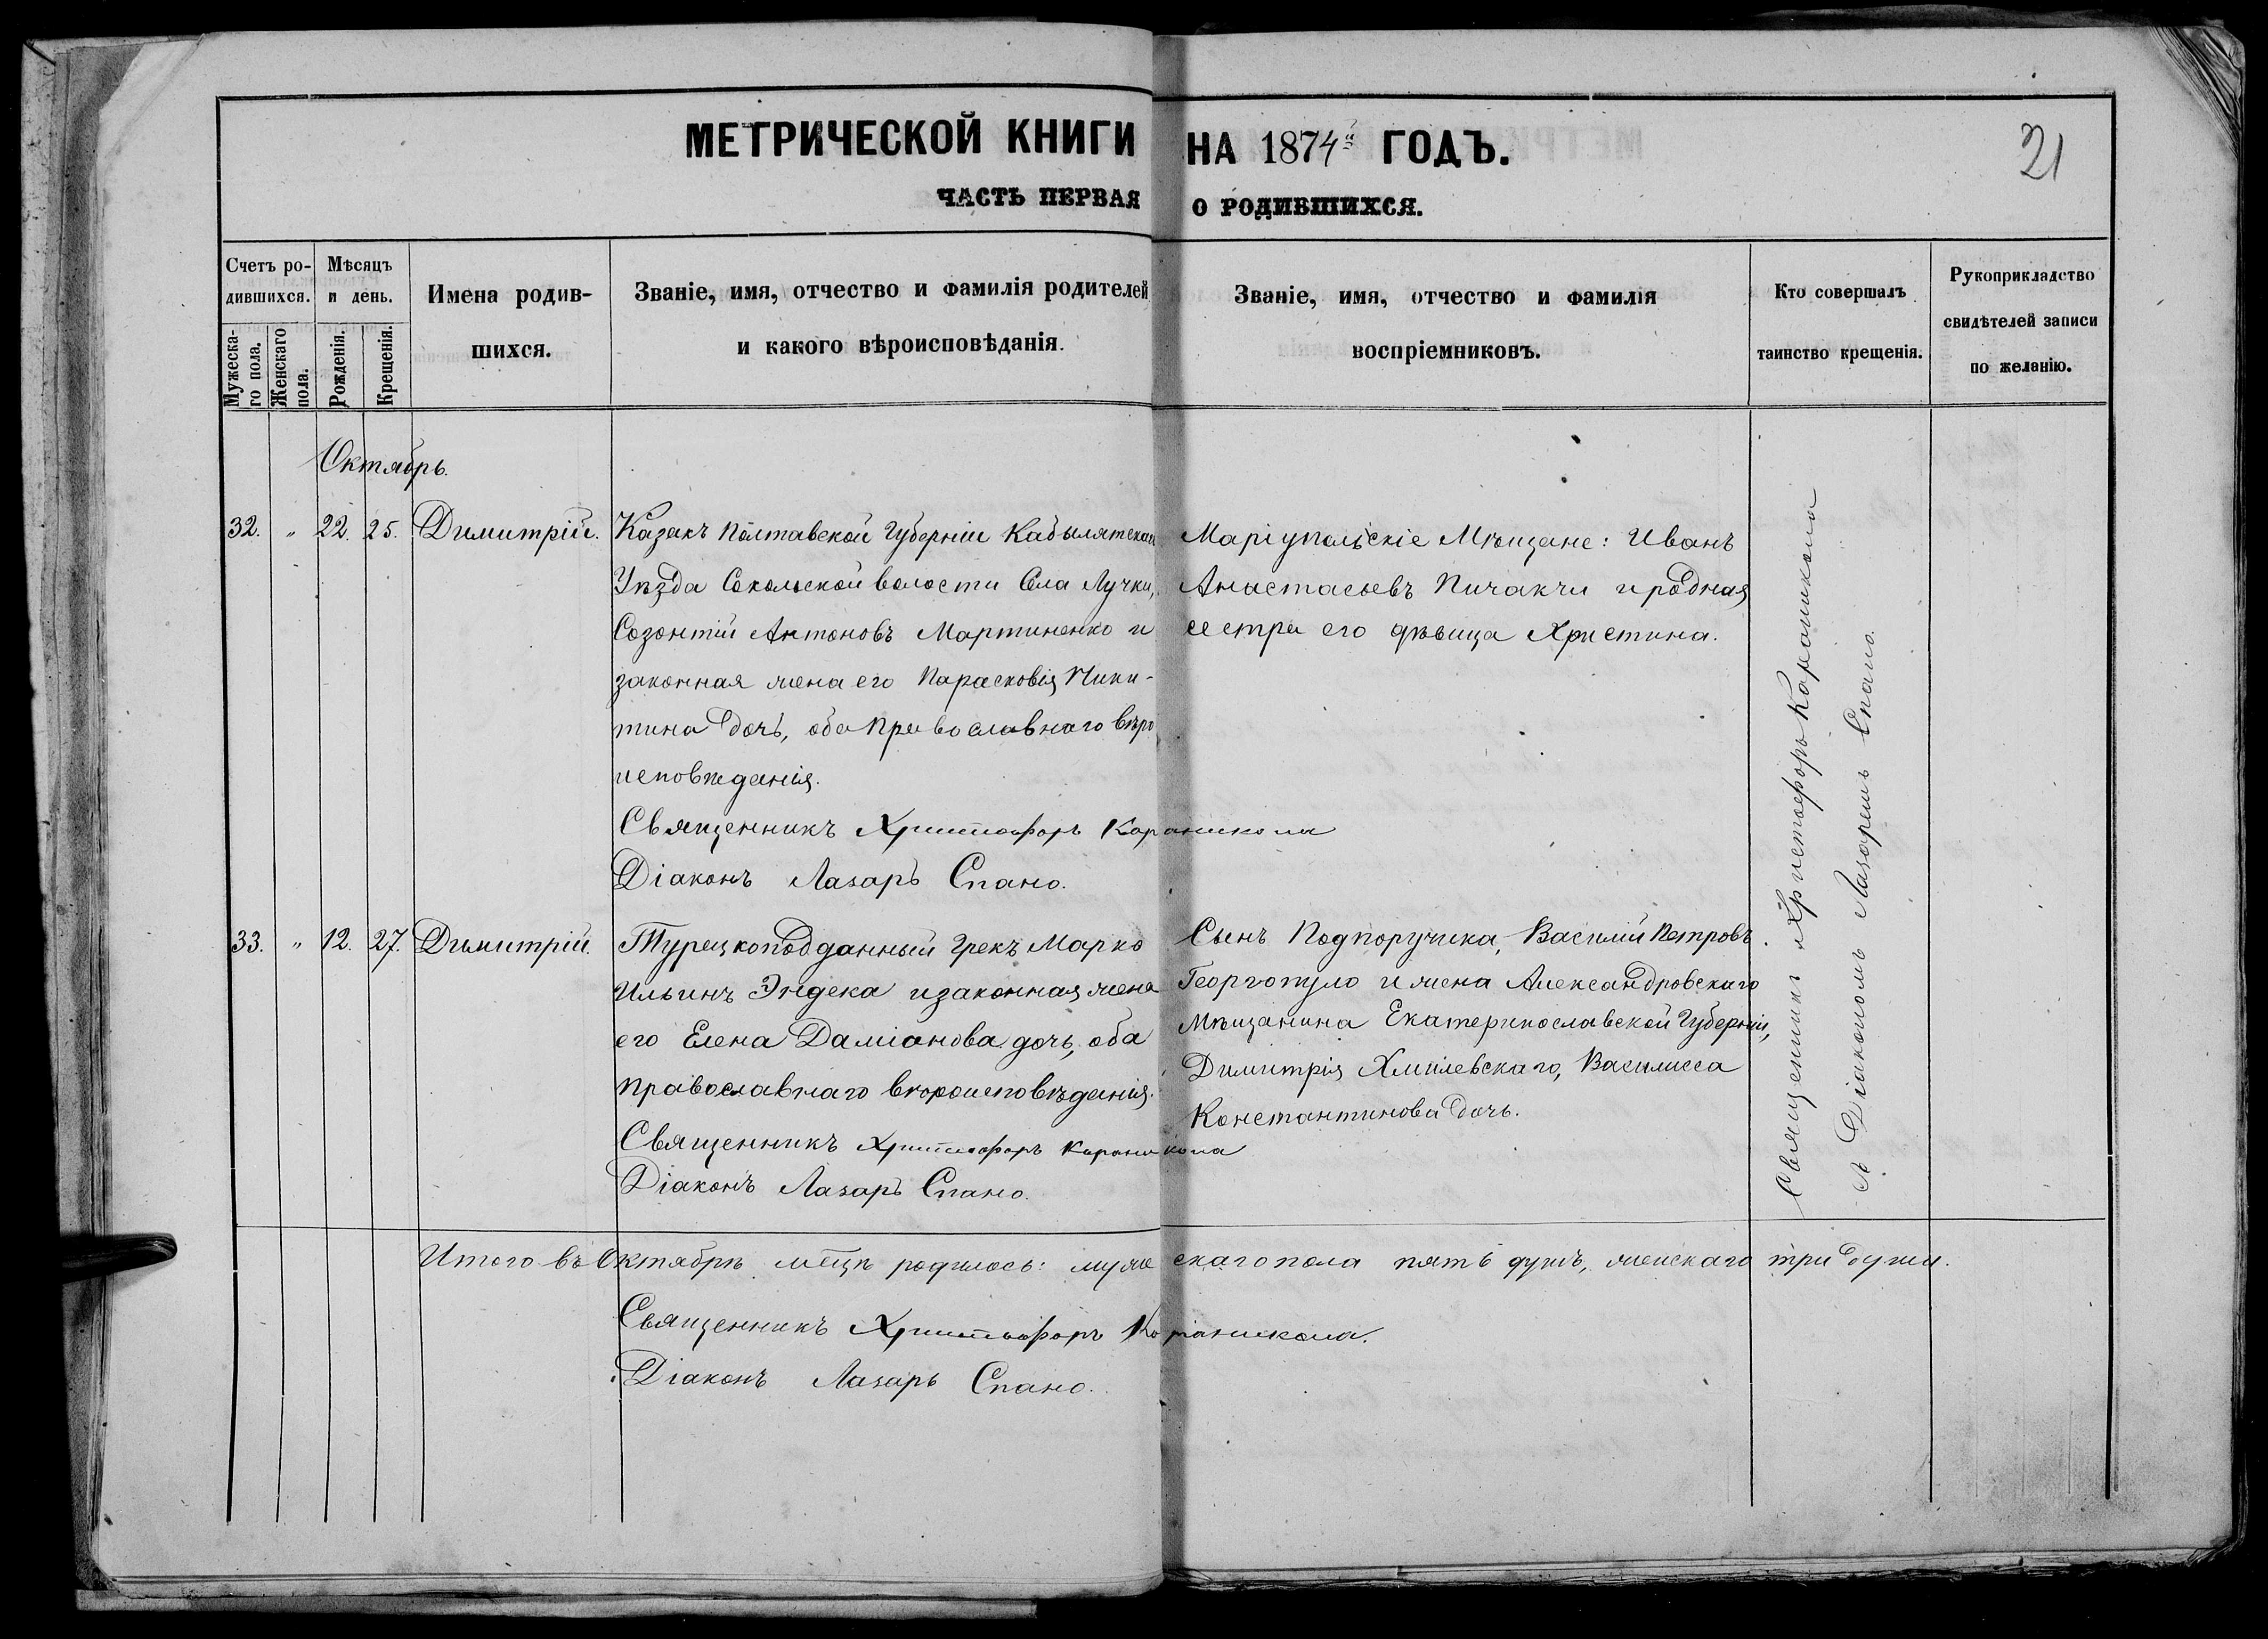 МЕТРИЧЕСКОЙ КНИГИ НА 1874й ГОДЪ.
21
ЧАСТЬ ПЕРВАЯ О РОДИВШИХСЯ.
Счетъ ро-
дившихся.
Мужеска-
го пола.
Женскаго
пола.
Мѣсяцъ
и день.
Рожденія.
Крещенія.
Имена родив-
шихся.
Званіе, имя, отчество и фамилія родителей
и какого вѣроисповѣданія.
Званіе, имя, отчество и фамилія
воспріемниковъ.
Кто совершалъ
таинство крещенія.
Рукоприкладство
свидѣтелей записи
по желанію.
Октябрь.
32. " 22. 25. Димитрій.
Казакъ Полтавской Губерніи Кабылятскаго
Уѣзда Сокольской волости Села Лучки,
Созонтій Антоновъ Мартиненко и
законная жена его Парасковія Ники-
тина дочь, оба православнаго вѣро
исповѣданія.
Священникъ Христофоръ Караникола
Діаконъ Лазарь Спано.
Маріупольскіе Мѣщане: Иванъ
Анастасьевъ Пичакчи и родная
сестра его дѣвица Христина.
33. " 12. 27. Димитрій.
Турецкоподданный Грекъ Марко
Ильинъ Эндека и законная жена
его Елена Даміанова дочь, оба
православнаго вѣроисповѣданія.
Священникъ Христофоръ Караникола
Діаконъ Лазарь Спано.
Сынъ Подпоручика, Василій Петровъ
Георгопуло и жена Александровскаго
Мѣщанина Екатеринославской Губерніи,
Димитрія Хмилевскаго, Василисса
Константинова дочь.
Священникъ Христофоръ Караникола
съ Діакономъ Лазаремъ Спано.
Итого въ Октябрѣ мѣцѣ родилось: мужескаго пола пять душъ, женскаго три души.
Священникъ Христофоръ Караникола.
Діаконъ Лазарь Спано.